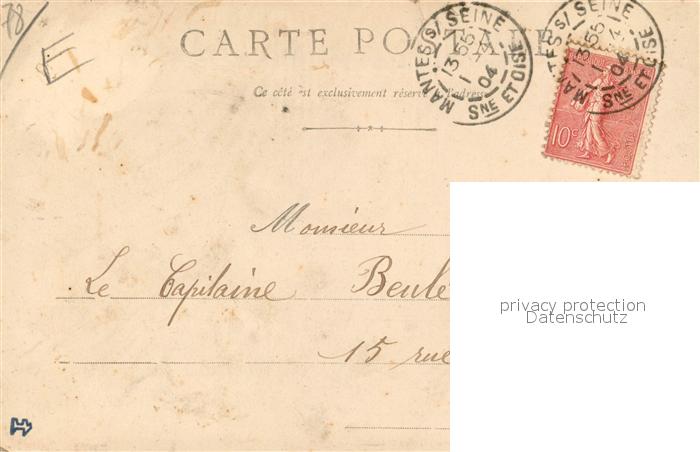 78
E
CARTE POSTALE
Ce côté est exclusivement réservé à l'adresse
MANTES S/ SEINE
13 55
04
SNE ET OISE
MANTES S/ SEINE
13 55
04
SNE ET OISE
10c
Monsieur
Le Capitaine Beulé
15 rue
privacy protection
Datenschutz